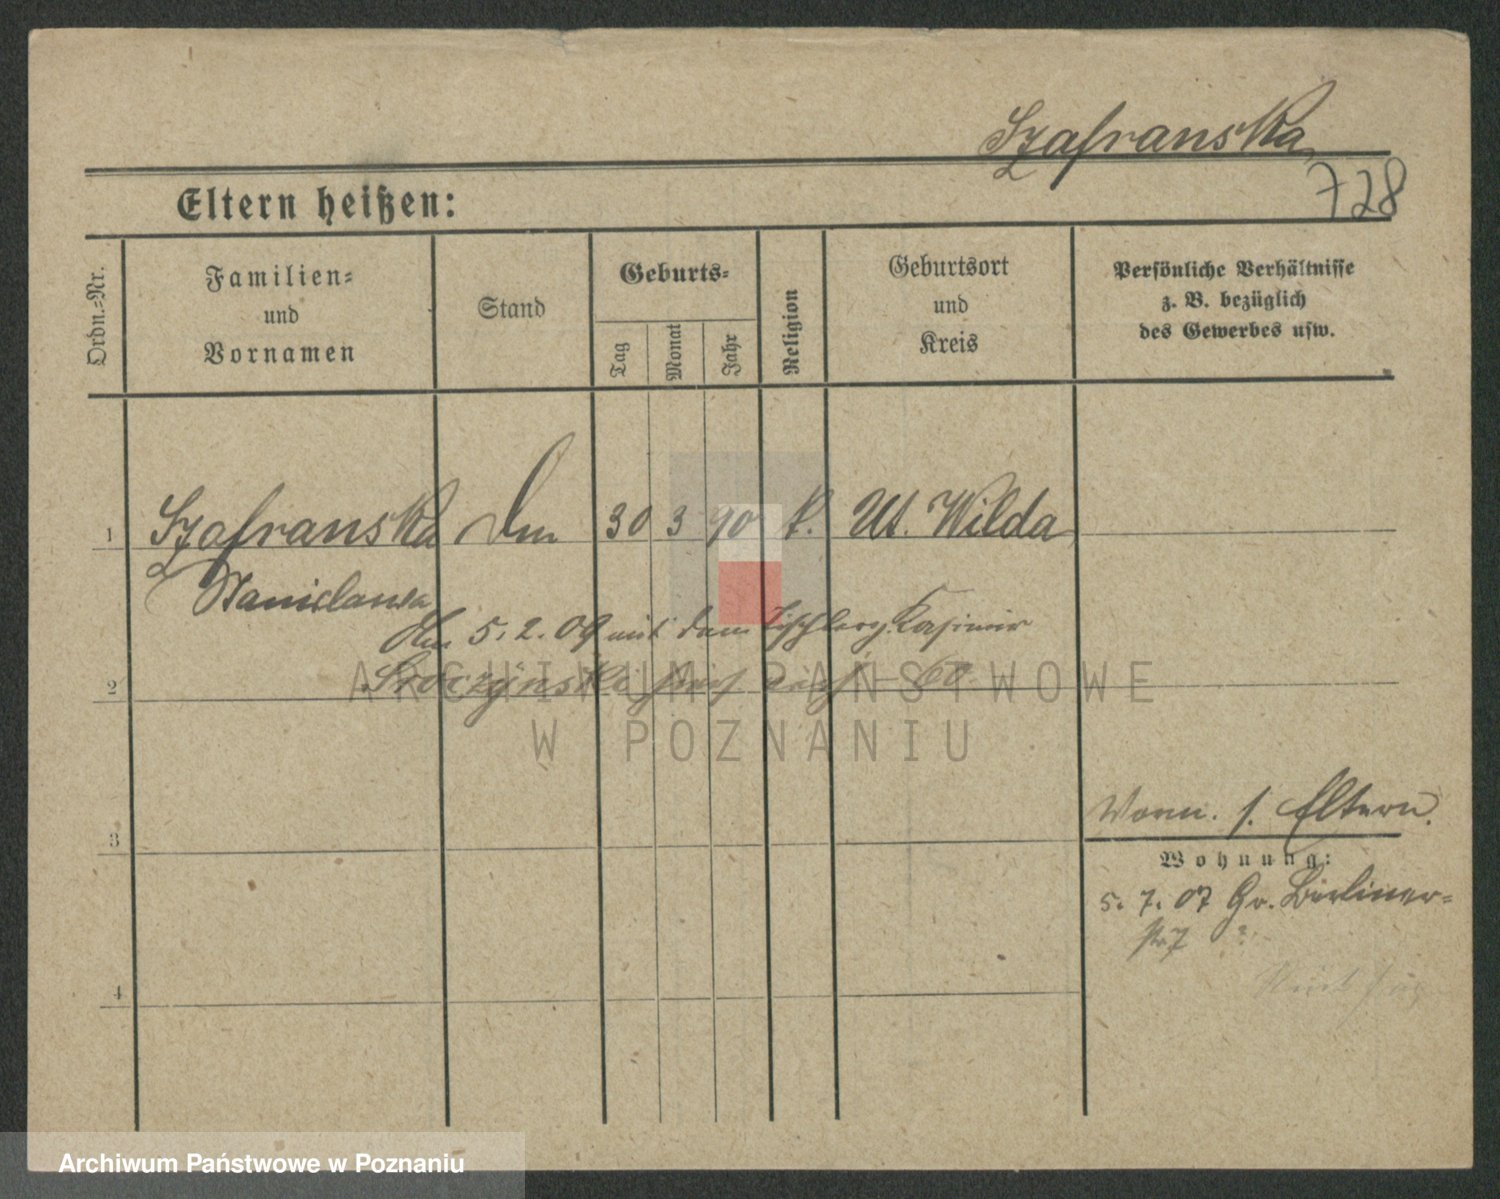 Szafranska
728
Eltern heißen:
Ordn.=Nr.
Familien=
und
Vornamen
Stand
Geburts=
Tag
Monat
Jahr
Religion
Geburtsort
und
Kreis
Persönliche Verhältnisse
z. B. bezüglich
des Gewerbes usw.
1 Szafranska 30 3 90 k. Wilda
Stanislawa
Am 5. 2. 09 mit dem Kasimir
2
3
Vorm. s. Eltern.
Wohnung:
5. 7. 07 Gr. Berliner=
str 7 ?
4
ARCHIWUM PAŃSTWOWE
W POZNANIU
Archiwum Państwowe w Poznaniu